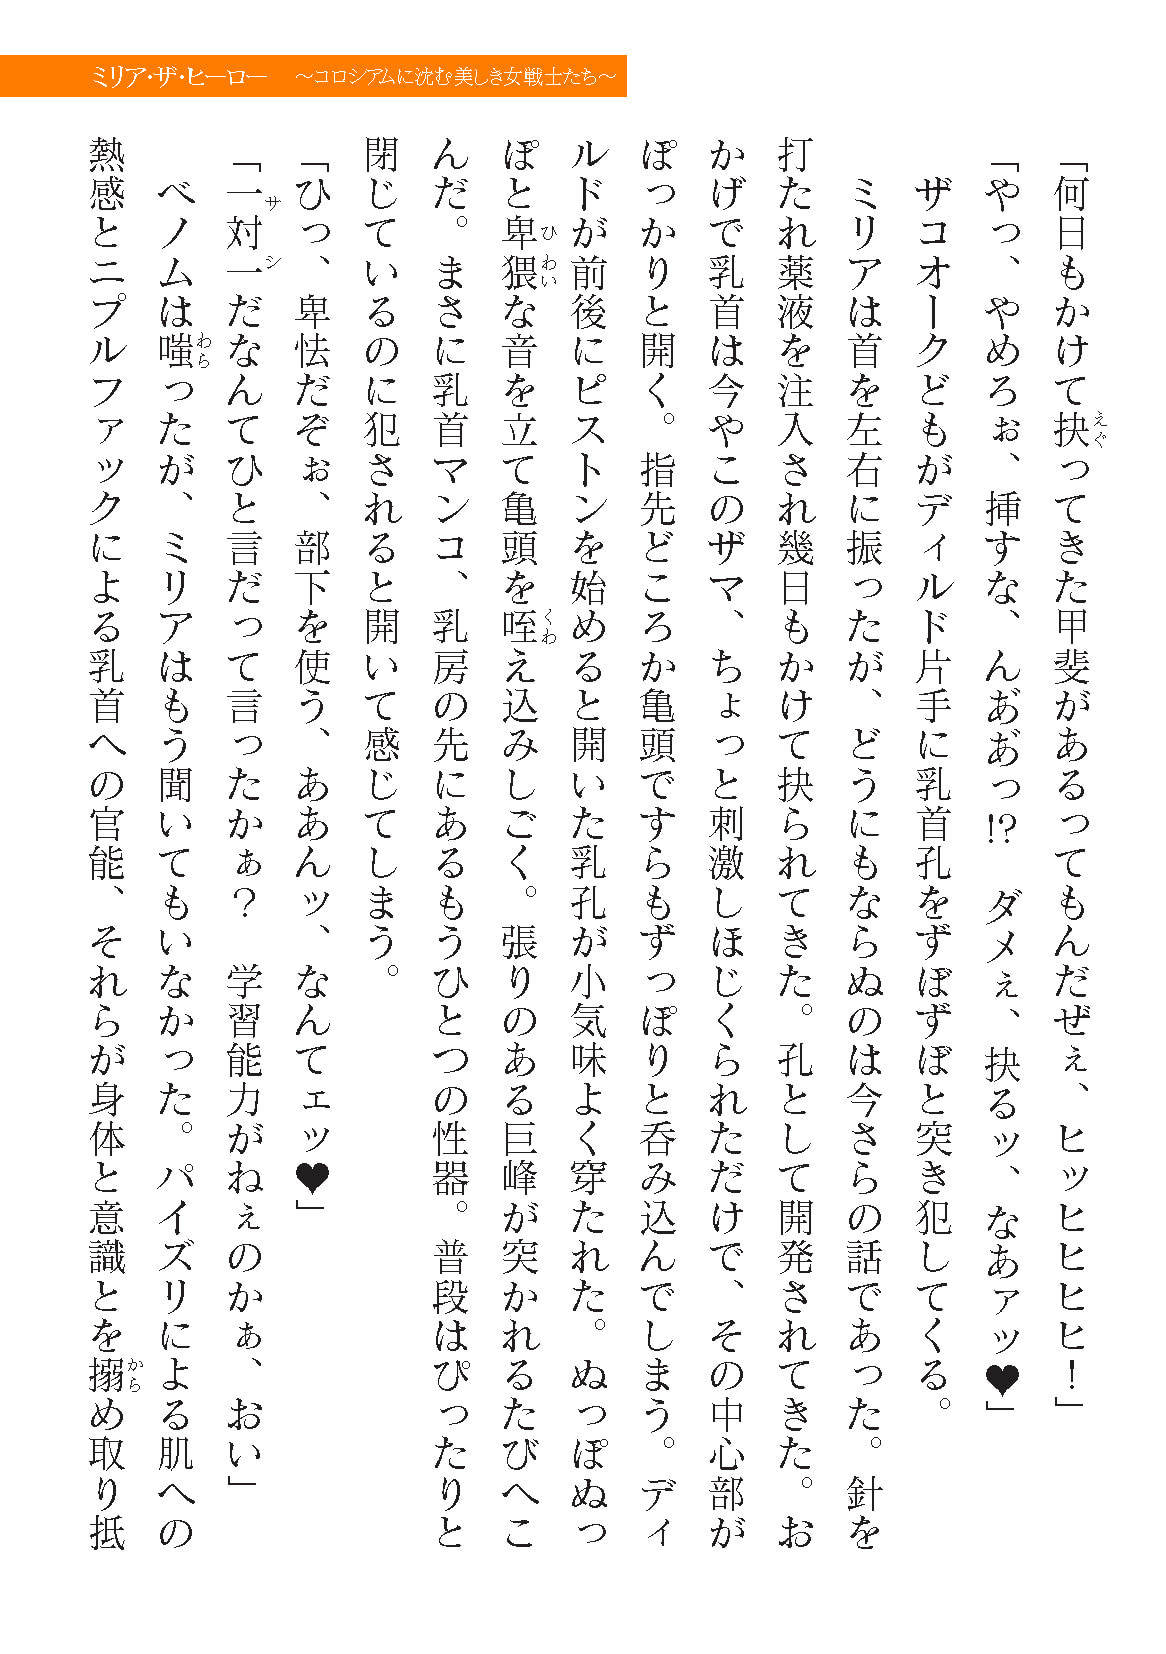 ミリア・ザ・ヒーロー　～コロシアムに沈む美しき女戦士たち～
「何日もかけて抉ってきた甲斐があるってもんだぜぇ、ヒッヒヒヒヒ！」
「やっ、やめろぉ、挿すな、んあ゛あ゛っ!?　ダメぇ、抉るッ、なあァッ♥」
　ザコオークどもがディルド片手に乳首孔をずぼずぼと突き犯してくる。
　ミリアは首を左右に振ったが、どうにもならぬのは今さらの話であった。針を
打たれ薬液を注入され幾日もかけて抉られてきた。孔として開発されてきた。お
かげで乳首は今やこのザマ、ちょっと刺激しほじくられただけで、その中心部が
ぽっかりと開く。指先どころか亀頭ですらもずっぽりと呑み込んでしまう。ディ
ルドが前後にピストンを始めると開いた乳孔が小気味よく穿たれた。ぬっぽぬっ
ぽと卑猥な音を立て亀頭を咥え込みしごく。張りのある巨峰が突かれるたびへこ
んだ。まさに乳首マンコ、乳房の先にあるもうひとつの性器。普段はぴったりと
閉じているのに犯されると開いて感じてしまう。
「ひっ、卑怯だぞぉ、部下を使う、ああんッ、なんてェッ♥」
「一対一だなんてひと言だって言ったかぁ？　学習能力がねぇのかぁ、おい」
　ベノムは嗤ったが、ミリアはもう聞いてもいなかった。パイズリによる肌への
熱感とニプルファックによる乳首への官能、それらが身体と意識とを搦め取り抵